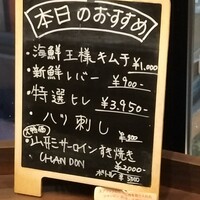 本日のおすすめ
・海鮮王様キムチ ¥1,000
・新鮮レバー ¥900-
・特選ヒレ ¥3,950-
・ハツ刺し
・山形サーロインすき焼き
¥2000-
・CHANDON